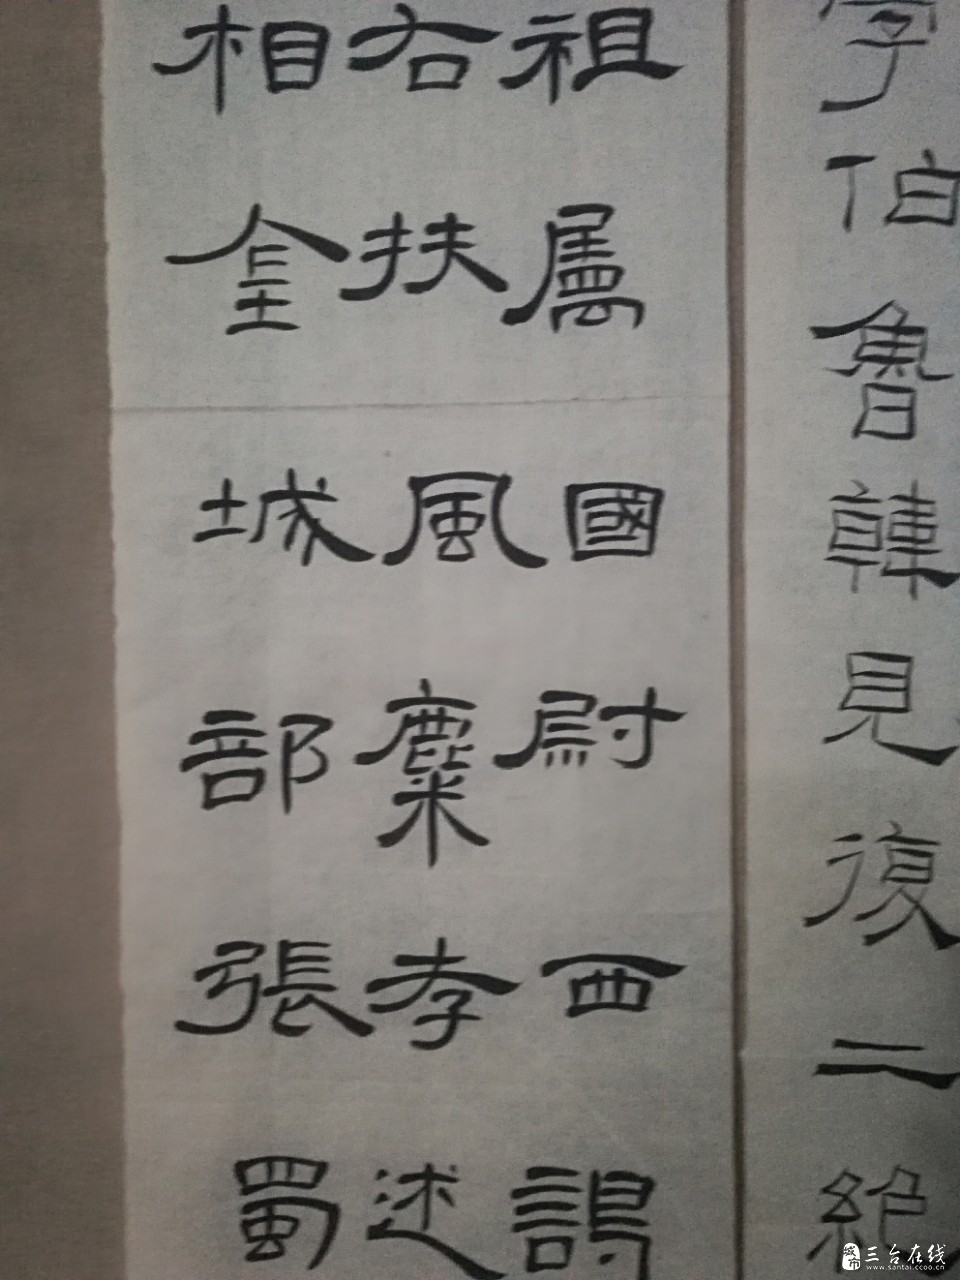 字伯魯韓見復二絶
祖屬國尉西謁
右扶風麋孝述
相金城部張蜀
三台在线
www.santai.ccoo.cn